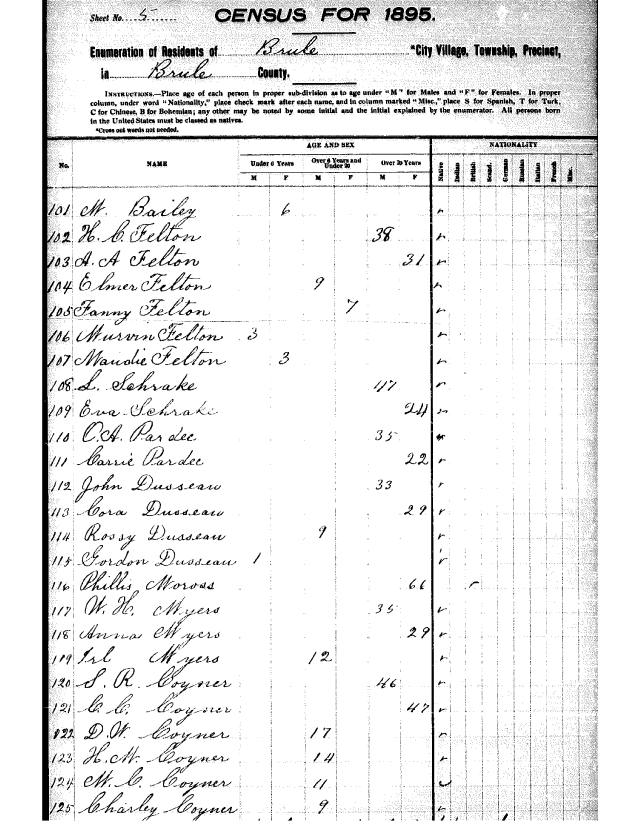 Sheet No. 5
CENSUS FOR 1895.
Enumeration of Residents of Brule *City Village, Township, Precinct,
in Brule County.
INSTRUCTIONS.—Place age of each person in proper sub-division as to age under "M" for Males and "F" for Females. In proper
column, under word "Nationality," place check mark after each name, and in column marked "Misc.," place S for Spanish, T for Turk,
C for Chinese, B for Bohemian; any other may be noted by some initial and the initial explained by the enumerator. All persons born
in the United States must be classed as natives.
*Cross out words not needed.
AGE AND SEX NATIONALITY
No. NAME Under 6 Years Over 6 Years and Under 20 Over 20 Years Native Indian British Scand. German Russian Italian French Misc.
M F M F M F
101 M. Bailey 6
102 H. C. Felton 38
103 A. A Felton 31
104 Elmer Felton 9
105 Fanny Felton 7
106 Murvin Felton 3
107 Maudie Felton 3
108 L. Schrake 47
109 Eva Schrake 24
110 O. A. Pardee 35
111 Carrie Pardee 22
112 John Dusseau 33
113 Cora Dusseau 29
114 Rossy Dusseau 9
115 Gordon Dusseau 1
116 Phillis Moross 66
117 W. H. Myers 35
118 Anna Myers 29
119 Irl Myers 12
120 S. R. Coyner 46
121 C. C. Coyner 47
122 D. W. Coyner 17
123 H. M. Coyner 14
124 M. C. Coyner 11
125 Charley Coyner 9